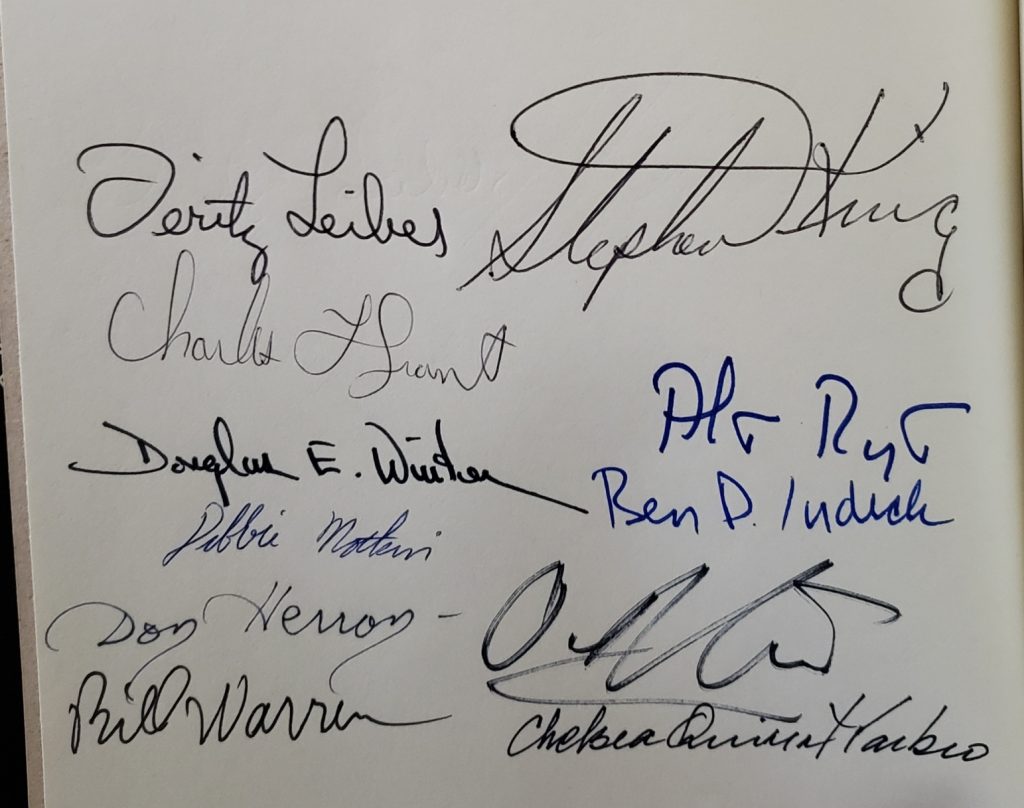 Fritz Leiber
Stephen King
Charles L Grant
Alan Ryan
Douglas E. Winter
Ben P. Indick
Debbie Notkin
Don Herron
Bill Warren
Chelsea Quinn Yarbro